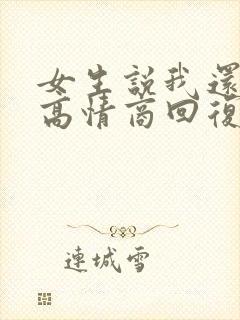 女生說我還
高情商回復
連城雪